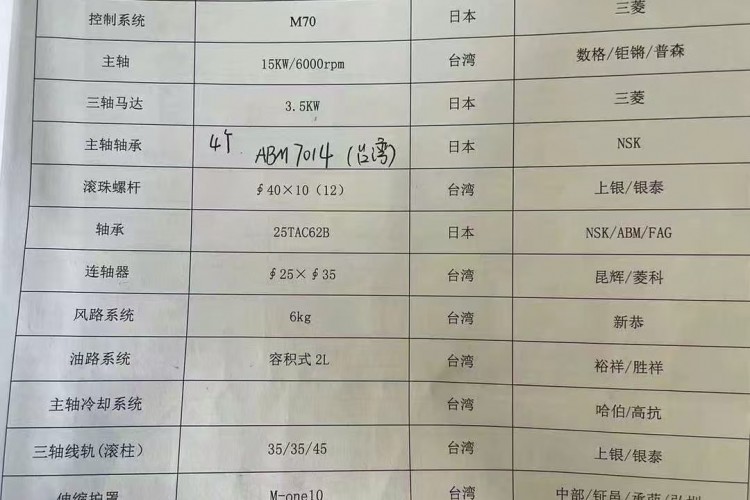 控制系统 M70 日本 三菱
主轴 15KW/6000rpm 台湾 数格/钜锵/普森
三轴马达 3.5KW 日本 三菱
主轴轴承 4个 ABM 7014 (台湾) 日本 NSK
滚珠螺杆 ∮40×10（12） 台湾 上银/银泰
轴承 25TAC62B 日本 NSK/ABM/FAG
连轴器 ∮25×∮35 台湾 昆辉/菱科
风路系统 6kg 台湾 新恭
油路系统 容积式 2L 台湾 裕祥/胜祥
主轴冷却系统 台湾 哈伯/高抗
三轴线轨(滚柱) 35/35/45 台湾 上银/银泰
伸缩护罩 M-one10 台湾 中部/钲邑